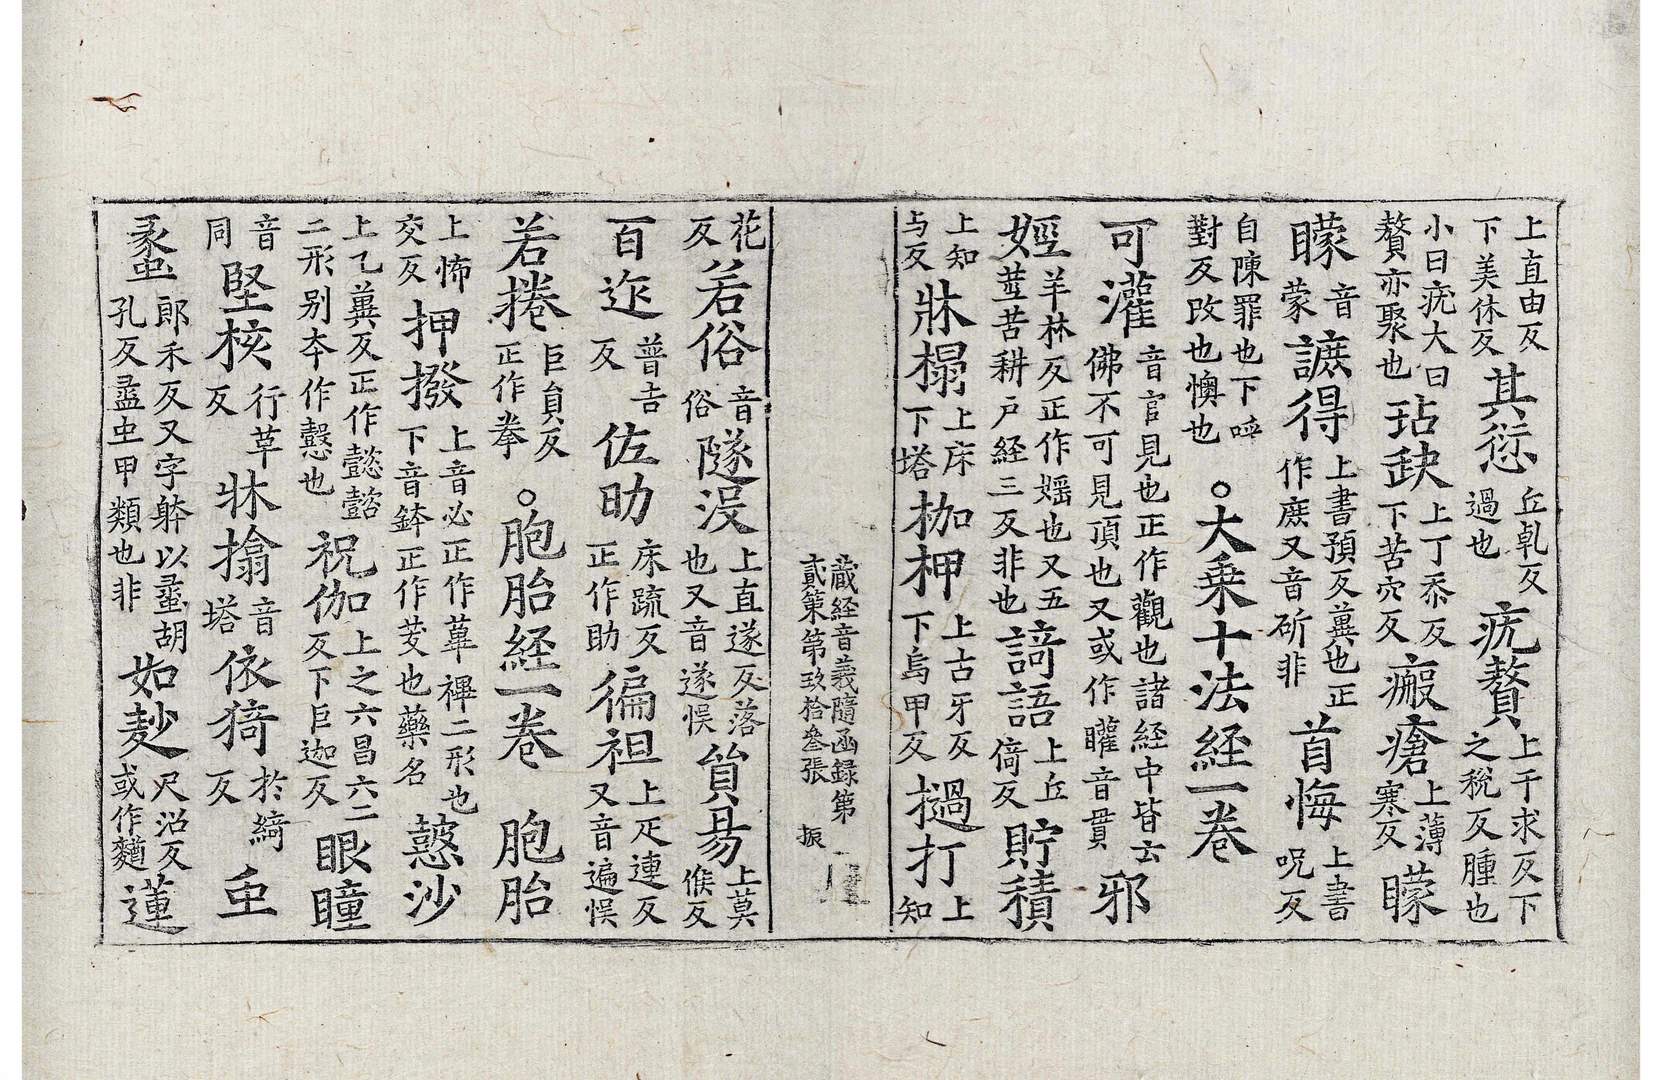 上直由反下美休反其愆丘乹反過也疣贅上于求反下之稅反腫也
小曰疣大曰贅亦聚也玷缺上丁忝反下苦穴反瘢瘡上薄寒反矇
矇音蒙謶得上書預反㒹也正作庶又音斫非首悔上書呪反
自陳罪也下呼對反改也懊也○大乗十法経一卷
可灌音官見也正作觀也諸経中皆云佛不可見頂也又或作矔音貫邪
婬羊林反正作婬也又五莖苦耕戸経三反非也䛴語上丘倚反貯積
上知与反牀榻上床下塔枷柙上古牙反下烏甲反撾打上知
藏経音義隨函録第貳第第玖拾叁張 振
花反若俗音俗隧没上直遂反落也又音遂悮貿易上莫候反
百迮普吉反佐助床疏反正作助徧袒上疋連反又音遍悮
若捲巨負反正作拳○胞胎経一卷 胞胎
上怖交反押撥上音必正作蓽襅二形也下音鉢正作茇也藥名懿沙
上乙兾反正作懿二形別夲作慤也祝伽上之六昌六二反下巨迦反眼瞳
音同堅核行革反牀搚音塔依猗於綺反虫
蠡郎禾反又字躰以蠡胡孔反蠡虫甲類也非如麨尺沼反或作麵蓮